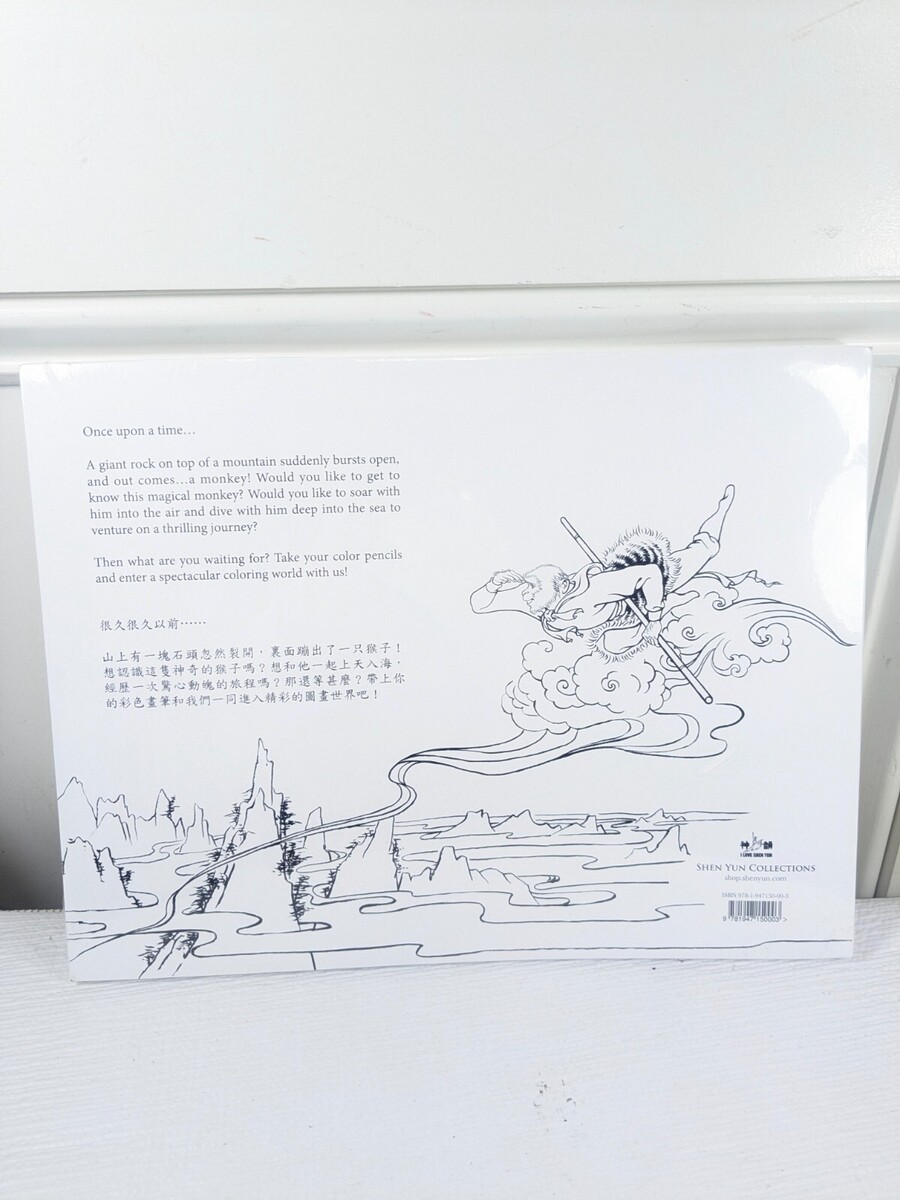 Once upon a time…
A giant rock on top of a mountain suddenly bursts open,
and out comes…a monkey! Would you like to get to
know this magical monkey? Would you like to soar with
him into the air and dive with him deep into the sea to
venture on a thrilling journey?
Then what are you waiting for? Take your color pencils
and enter a spectacular coloring world with us!
很久很久以前……
山上有一塊石頭忽然裂開，裏面蹦出了一只猴子！
想認識這隻神奇的猴子嗎？想和他一起上天入海，
經歷一次驚心動魄的旅程嗎？那還等甚麼？帶上你
的彩色畫筆和我們一同進入精彩的圖畫世界吧！
神韻
I LOVE SHEN YUN
SHEN YUN COLLECTIONS
shop.shenyun.com
ISBN 978-1-947150-00-3
9 781947 150003 >